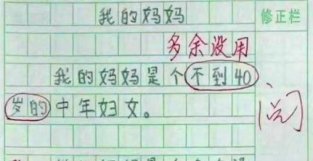 我的妈妈
修正栏
多余没用
我的妈妈是个不到40
岁的中年妇女。
阅